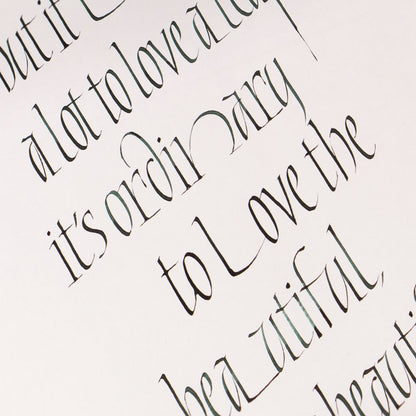 but it
a lot to love a lea
it's ordinary
to Love the
beautiful,
beauti